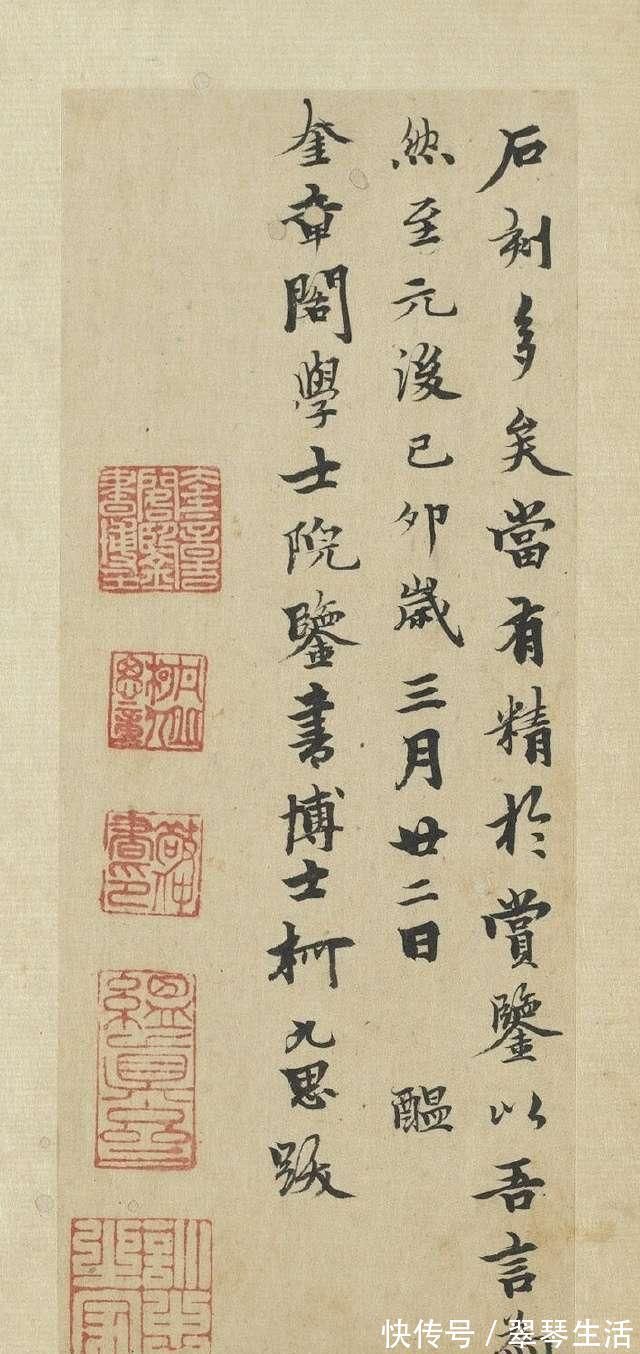 石刻多矣當有精於賞鑒以吾言為
然至元後己卯歲三月廿二日 醖
奎章閣學士院鑒書博士柯九思跋
奎章閣鑒書博士
敬仲書印
訓忠之家
快传号 / 翠琴生活